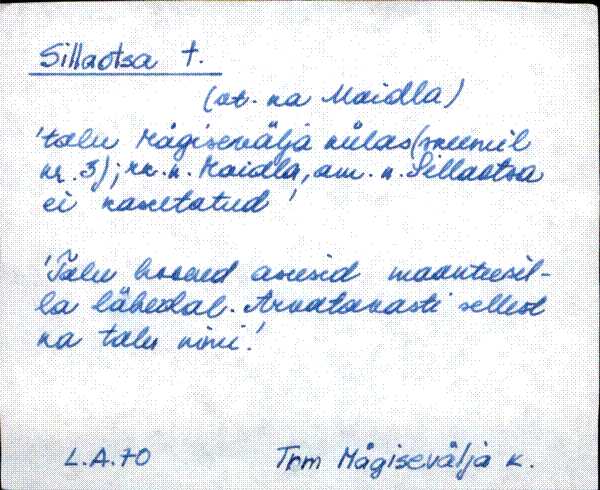 Sillaotsa t.
(vt. ka Maidla)
'talu Mägisevälja külas (skeemil
nr. 3); rk. n. Maidla, am. n. Sillaotsa
ei kasutatud'
'Talu hooned asusid maanteesil-
la lähedal. Arvatavasti sellest
ka talu nimi.'
L.A.70
Trm Mägisevälja k.